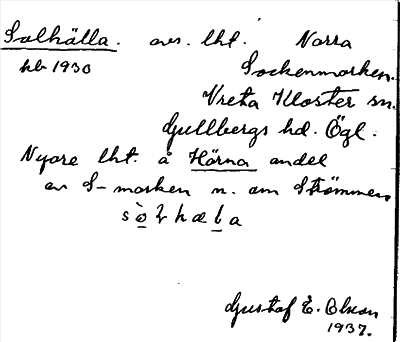 Solhälla. avs. lht. Norra
kb 1930 Sockenmarken.
Vreta Kloster sn.
Gullbergs hd. Ögl.
Nyare lht. å Härna andel
av S-marken n. om Strömmen
Gustaf E. Olson
1937.